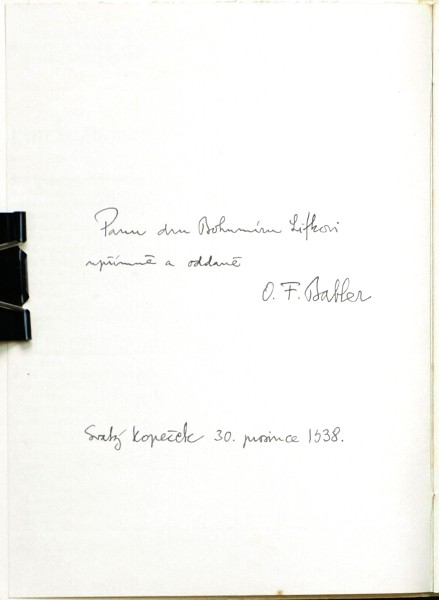 Panu dru Bohumíru Lifkovi
upřímně a oddaně
O. F. Babler
Svatý Kopeček 30. prosince 1938.